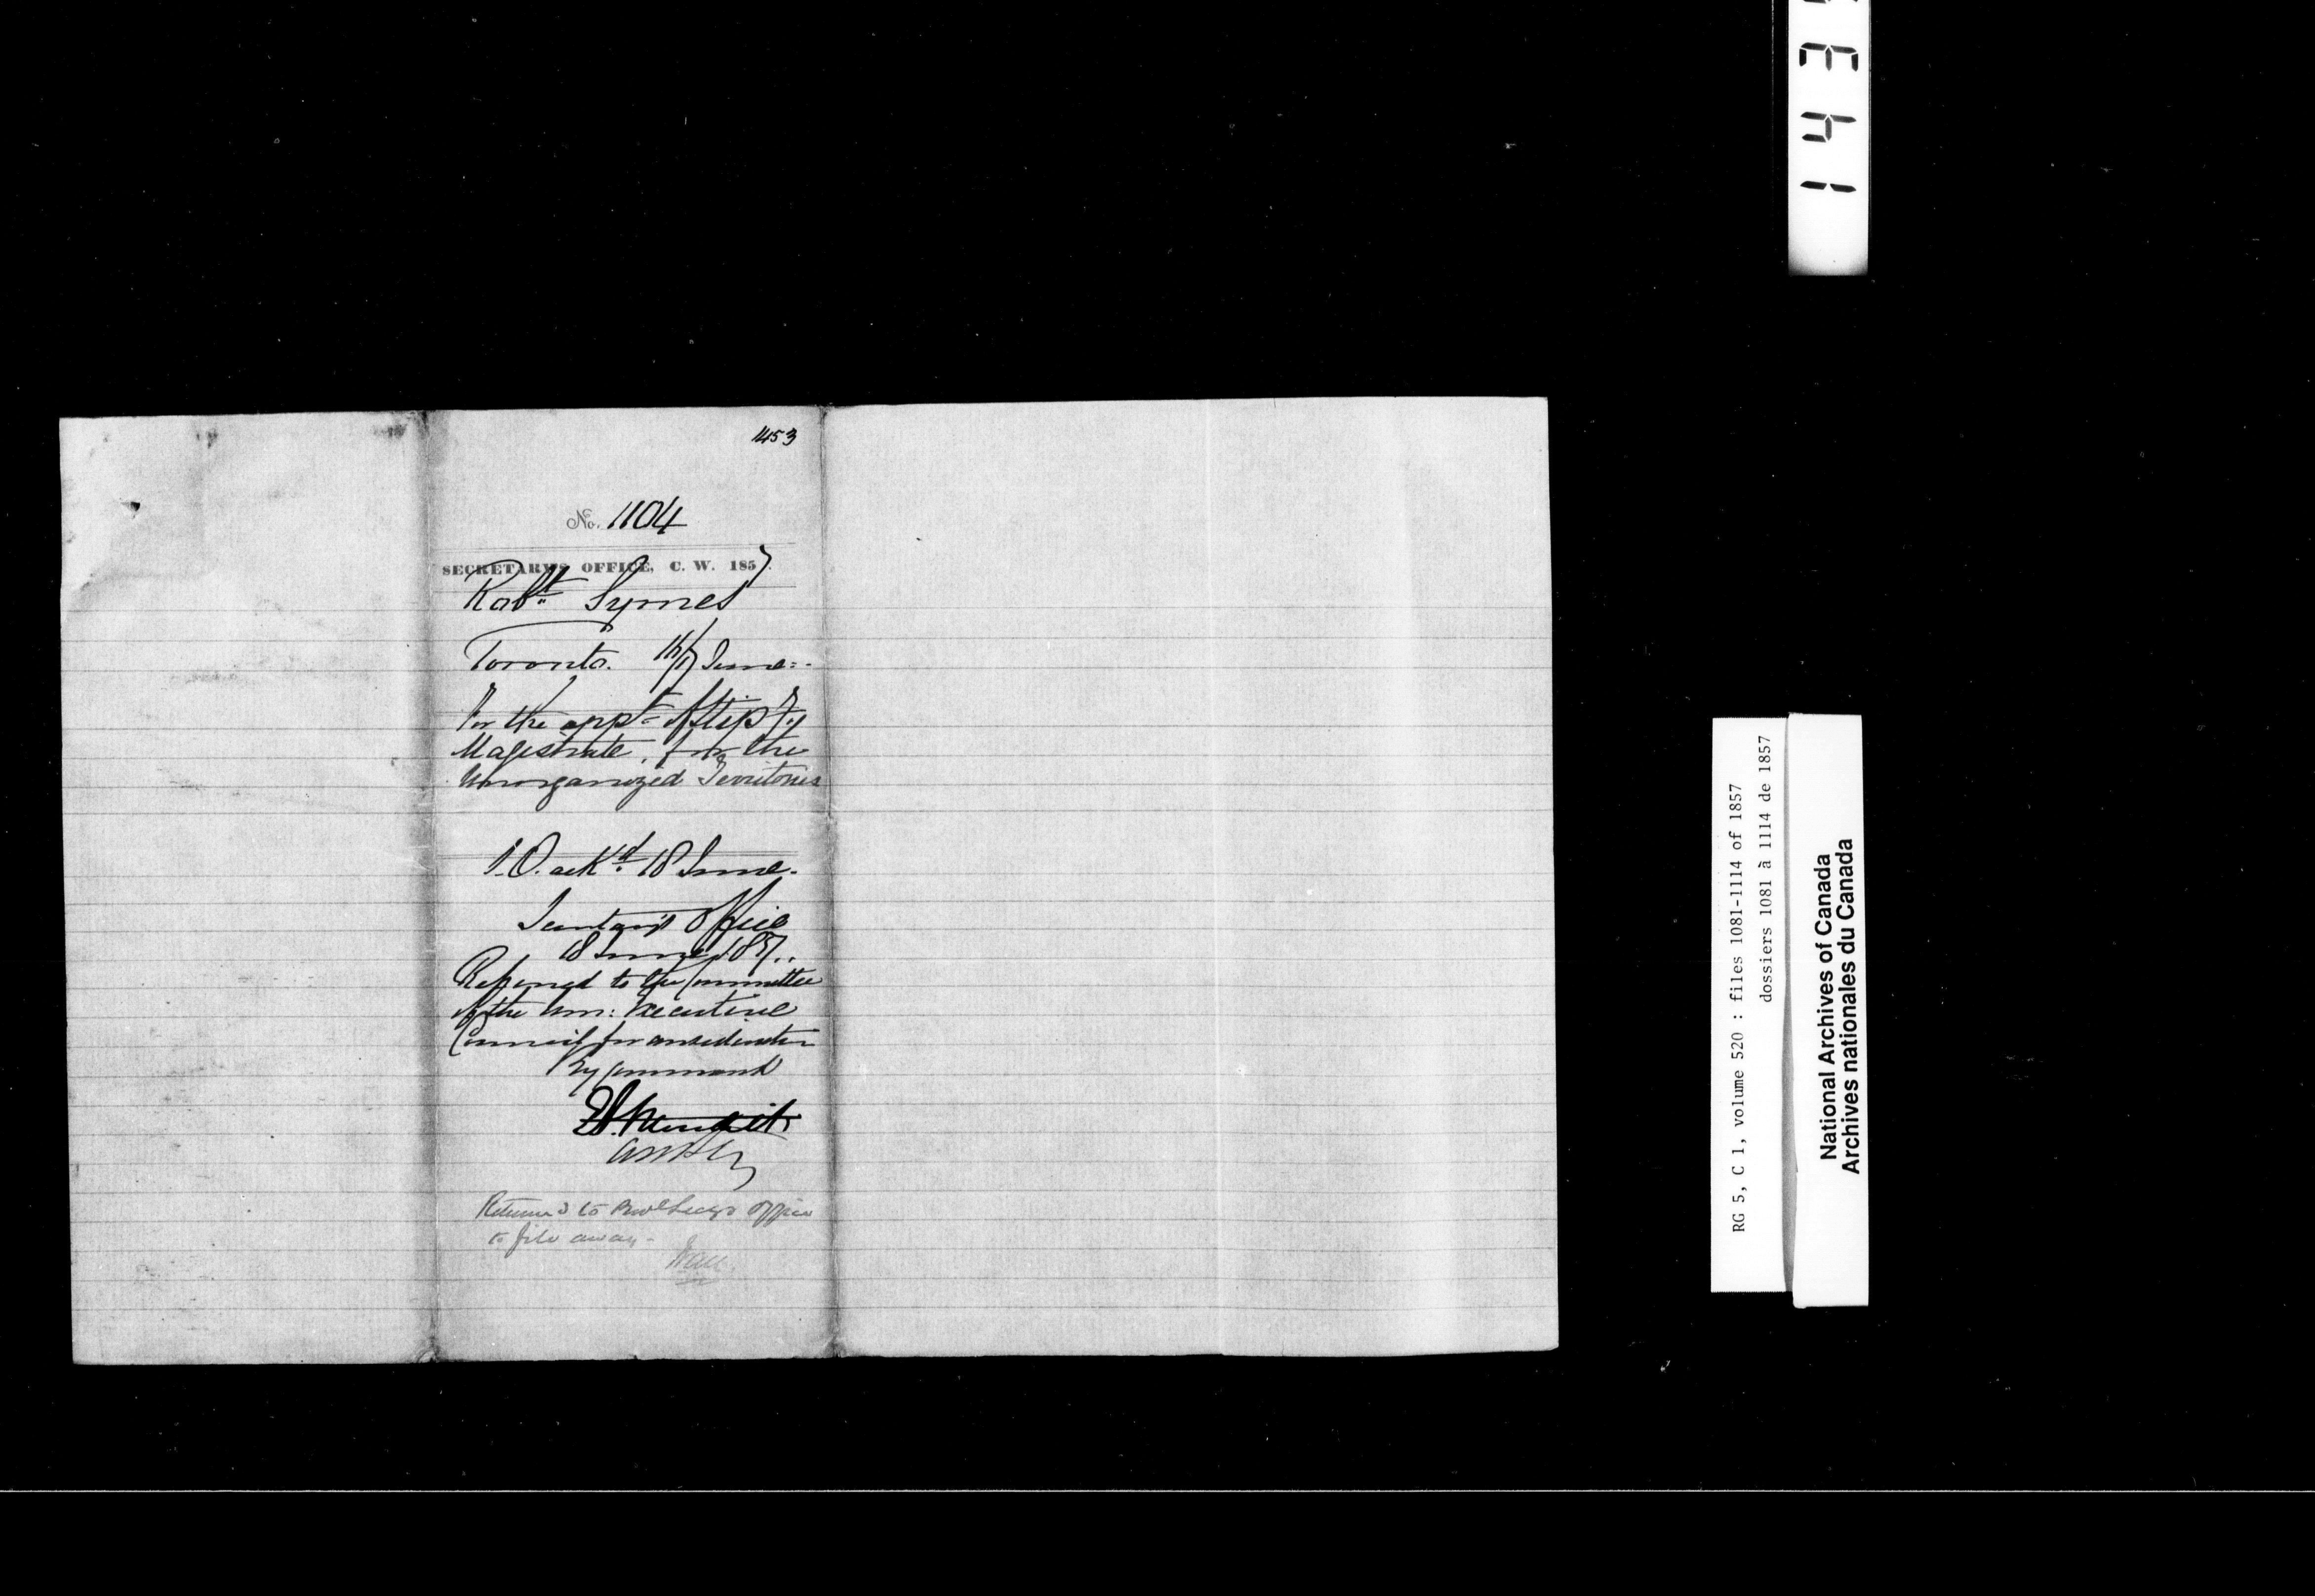 1453
No. 1104
SECRETARY'S OFFICE, C. W. 1857.
Robt. Symes
Toronto. 16/17 June.
For the appt. of Stipy
Magistrate, for the
Unorganized Territories
ackd. 18 June.
Secretary's Office
18 June 1857.
Referred to the Committee
of the Hon: Executive
Council for consideration
By Command
Returned to Prov Secys Office
to file away -
RG 5, C 1, volume 520 : files 1081-1114 of 1857
dossiers 1081 à 1114 de 1857
National Archives of Canada
Archives nationales du Canada